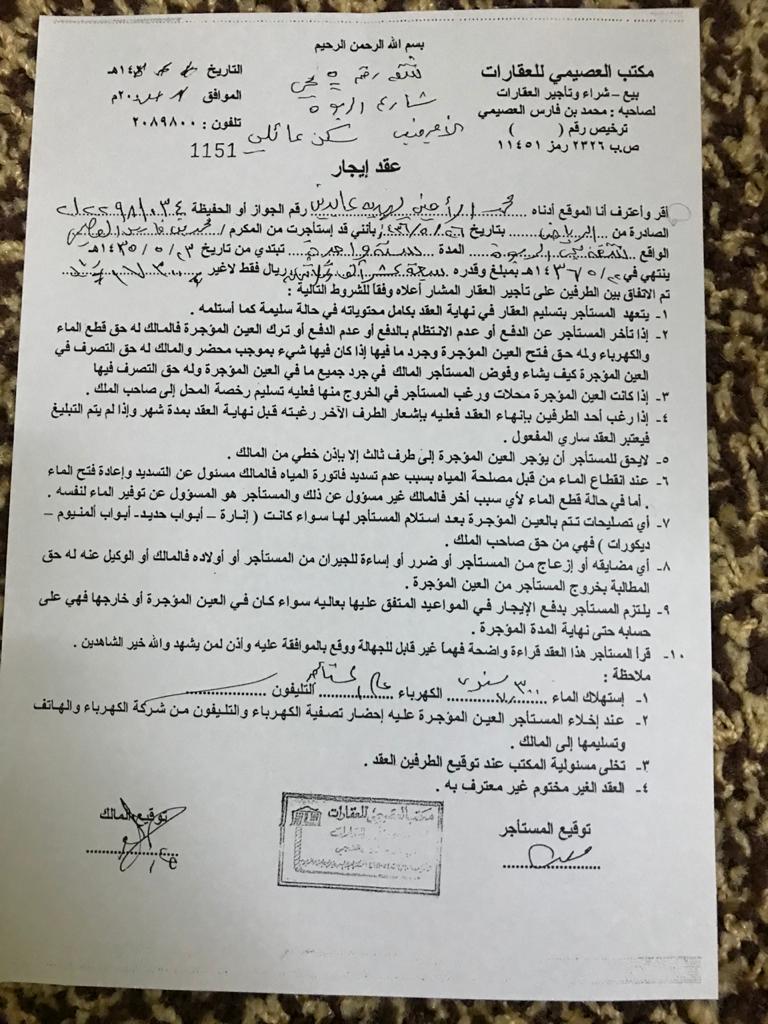 بسم الله الرحمن الرحيم
مكتب العصيمي للعقارات
بيع – شراء وتأجير العقارات
لصاحبه : محمد بن فارس العصيمي
ترخيص رقم ( )
ص.ب ٢٣٢٦ رمز ١١٤٥١
شقة رقم ٥
شارع الربوة
سكن عائلي
1151
التاريخ هـ١٤
الموافق م٢٠
تلفون : ٢٠٨٩٨٠٠
عقد إيجار
أقر وأعترف أنا الموقع أدناه رقم الجواز أو الحفيظة
الصادرة من الرياض بتاريخ بأنني قد إستأجرت من المكرم / محمد بن فارس العصيمي
الواقع المدة سنة واحدة تبتدي من تاريخ ٢٣ / ٥ / ١٤٣٥هـ
ينتهي في ١٤٣٦هـ بمبلغ وقدره ريال فقط لاغير
تم الاتفاق بين الطرفين على تأجير العقار المشار أعلاه وفقاً للشروط التالية :
١- يتعهد المستأجر بتسليم العقار في نهاية العقد بكامل محتوياته في حالة سليمة كما أستلمه .
٢- إذا تأخر المستأجر عن الدفع أو عدم الانتظام بالدفع أو عدم الدفع أو ترك العين المؤجرة فالمالك له حق قطع الماء
والكهرباء وله حق فتح العين المؤجرة وجرد ما فيها إذا كان فيها شيء بموجب محضر والمالك له حق التصرف في
العين المؤجرة كيف يشاء وفوض المستأجر المالك في جرد جميع ما في العين المؤجرة وله حق التصرف فيها
٣- إذا كانت العين المؤجرة محلات ورغب المستأجر في الخروج منها فعليه تسليم رخصة المحل إلى صاحب الملك .
٤- إذا رغب أحد الطرفين بإنهاء العقد فعليه بإشعار الطرف الآخر رغبته قبل نهاية العقد بمدة شهر وإذا لم يتم التبليغ
فيعتبر العقد ساري المفعول .
٥- لايحق للمستأجر أن يؤجر العين المؤجرة إلى طرف ثالث إلا بإذن خطي من المالك .
٦- عند انقطاع الماء من قبل مصلحة المياه بسبب عدم تسديد فاتورة المياه فالمالك مسئول عن التسديد وإعادة فتح الماء
. أما في حالة قطع الماء لأي سبب أخر فالمالك غير مسؤول عن ذلك والمستأجر هو المسؤول عن توفير الماء لنفسه .
٧- أي تصليحات تتم بالعين المؤجرة بعد استلام المستأجر لها سواء كانت ( إنارة – أبواب حديد- أبواب ألمنيوم –
ديكورات ) فهي من حق صاحب الملك .
٨- أي مضايقه أو إزعاج من المستأجر أو ضرر أو إساءة للجيران من المستأجر أو أولاده فالمالك أو الوكيل عنه له حق
المطالبة بخروج المستأجر من العين المؤجرة .
٩- يلتزم المستأجر بدفع الإيجار في المواعيد المتفق عليها بعاليه سواء كان في العين المؤجرة أو خارجها فهي على
حسابه حتى نهاية المدة المؤجرة .
١٠- قرأ المستأجر هذا العقد قراءة واضحة فهماً غير قابل للجهالة ووقع بالموافقة عليه وأذن لمن يشهد والله خير الشاهدين .
ملاحظة :
١- إستهلاك الماء ٣٠٠ سنوي الكهرباء على المستأجر التليفون
٢- عند إخلاء المستأجر العين المؤجرة عليه إحضار تصفية الكهرباء والتليفون من شركة الكهرباء والهاتف
وتسليمها إلى المالك .
٣- تخلى مسئولية المكتب عند توقيع الطرفين العقد .
٤- العقد الغير مختوم غير معترف به .
توقيع المستأجر
مكتب العصيمي للعقارات
توقيع المالك